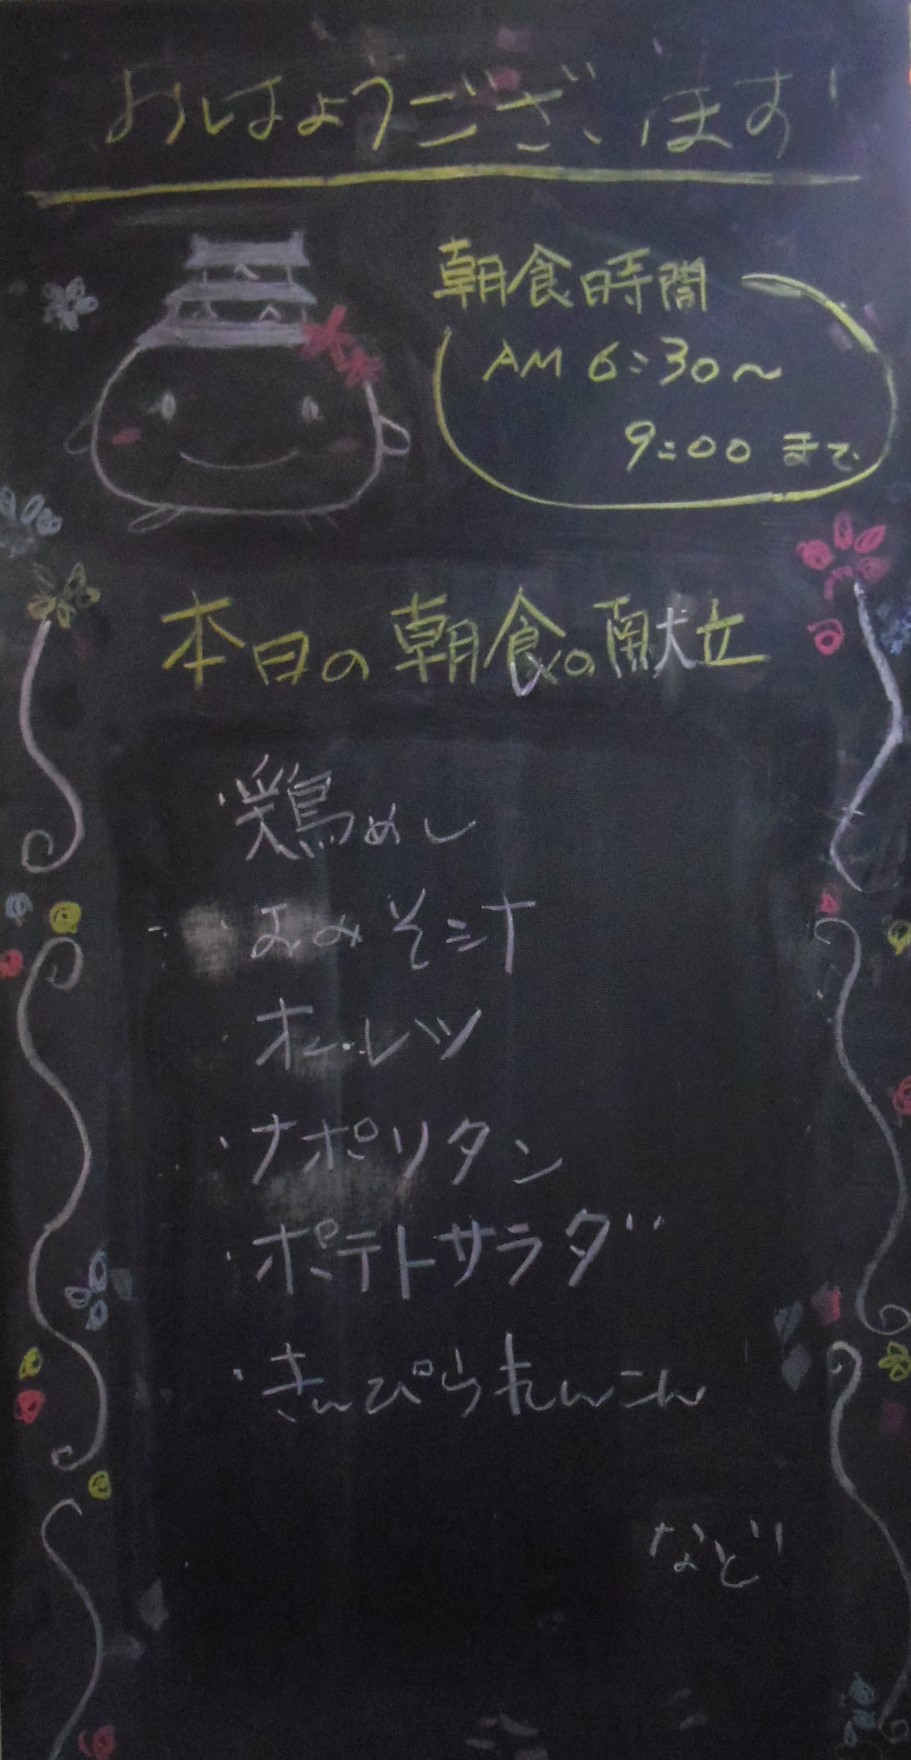 おはようございます!
朝食時間
AM 6:30～
9:00 まで
本日の朝食の献立
・鶏めし
・おみそ汁
・オムレツ
・ナポリタン
・ポテトサラダ
・きんぴられんこん
など!!